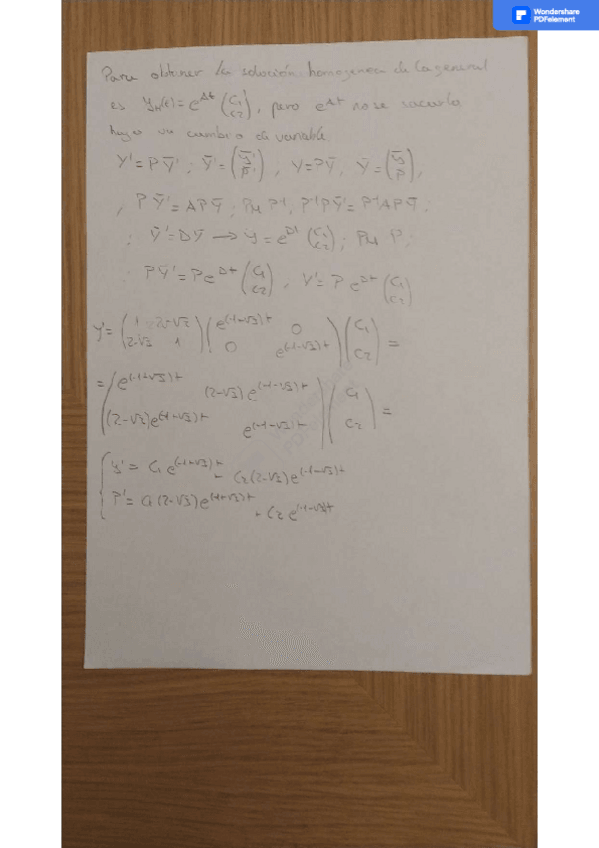 Wondershare
PDFelement
Para obtener la solución homogenea de la general
es y_H(t) = e^{At} (C1 C2), pero e^{At} no se sacarlo
hago un cambio de variable
Y' = PȲ' ; Ȳ' = (ȳ' p̄'), Y = PȲ, Ȳ = (ȳ p̄),
, PȲ' = APȲ ; P^{-1}, P^{-1}PȲ' = P^{-1}APȲ ;
; Ȳ' = DȲ → y = e^{Dt} (C1 C2) ; P ;
PȲ' = Pe^{Dt} (C1 C2), Y' = Pe^{Dt} (C1 C2)
Y' = (1 2-√3 2-√3 1) (e^{(-1+√3)t} 0 0 e^{(-1-√3)t}) (C1 C2) =
= (e^{(-1+√3)t} (2-√3)e^{(-1-√3)t} (2-√3)e^{(-1+√3)t} e^{(-1-√3)t}) (C1 C2) =
{ y' = C1 e^{(-1+√3)t} + C2(2-√3)e^{(-1-√3)t}
P' = C1(2-√3)e^{(-1+√3)t} + C2 e^{(-1-√3)t}